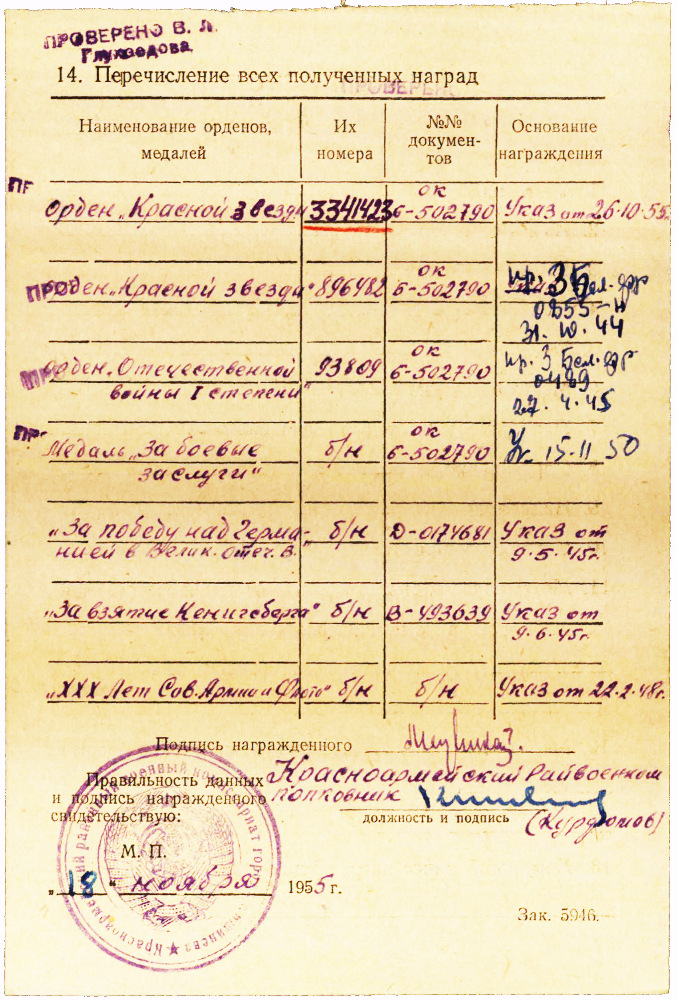 ПРОВЕРЕНО В. Л.
14. Перечисление всех полученных наград
ПРОВЕРЕНО
Наименование орденов, медалей
Их номера
№№ документов
Основание награждения
Орден „Красной звезды 3341423 ОК б-502790 Указ от 26.10.55г.
Орден „Красной звезды" 896482 ОК б-502790 пр. 3 Бел. фр 0855-н 31.10.44
Орден „Отечественной 93809 ОК б-502790 пр. 3 Бел. фр 0489
войны I степени" 27.4.45
Медаль „За боевые б/н ОК б-502790 Ук. 15.11 50
заслуги"
„За победу над Герма- б/н D-0174681 Указ от
нией в Велик. отеч. в." 9.5.45г.
„За взятие Кенигсберга" б/н В-493639 Указ от
9.6.45г.
„XXX Лет Сов. Армии и Флота" б/н б/н Указ от 22.2.48г.
Подпись награжденного
Правильность данных
и подпись награжденного
свидетельствую:
Красноармейский Райвоенком
полковник
должность и подпись
М. П.
„18" ноября 1955 г.
Зак. 5946.